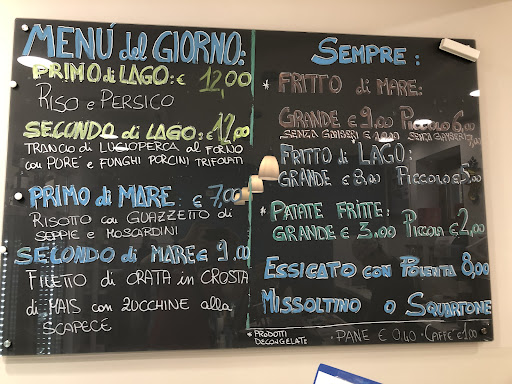 MENÚ del GIORNO:
PRIMO di LAGO: € 12,00
RISO e PERSICO
SECONDO di LAGO: € 12,00
TRANCIO di LUCIOPERCA al FORNO
con PURE' e FUNGHI PORCINI TRIFOLATI
PRIMO di MARE: € 7,00
RISOTTO con GUAZZETTO di
SEPPIE e MOSCARDINI
SECONDO di MARE € 9.00
FILETTO di ORATA in CROSTA
di MAIS con ZUCCHINE alla
SCAPECE
SEMPRE:
* FRITTO di MARE:
GRANDE € 9,00 PICCOLO 6,00
SENZA GAMBERI SENZA GAMBERI
FRITTO di LAGO:
GRANDE € 8,00 PICCOLO €
* PATATE FRITTE:
GRANDE € 3.00 PICCOLA € 2,00
ESSICATO con POLENTA 8,00
MISSOLTINO O SQUARTONE
* PRODOTTI
DECONGELATI
PANE € 0,40 - CAFFE' €1,00